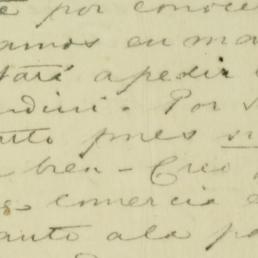 por conoce
amos en ma
tará apedir
dini. Por s
to pues su
bien - Creo
comercia
anto a la pa